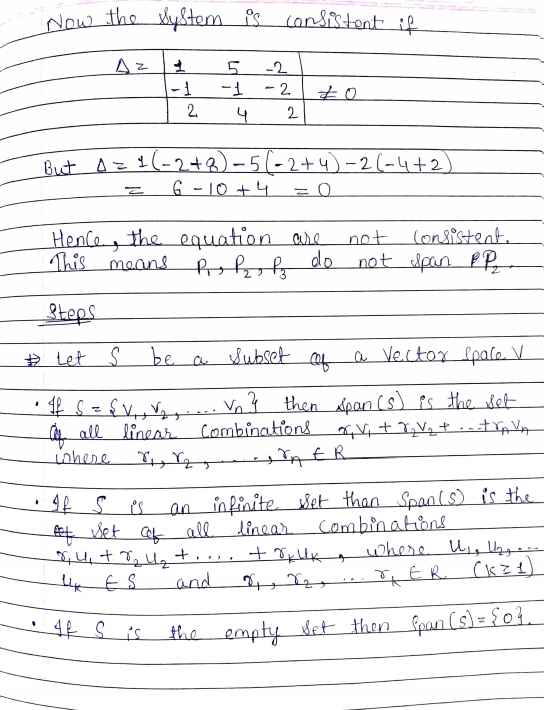 Now the system is consistent if
Δ = | 1 5 -2 |
| -1 -1 -2 | ≠ 0
| 2 4 2 |
But Δ = 1(-2+8) - 5(-2+4) - 2(-4+2)
= 6 - 10 + 4 = 0
Hence, the equation are not consistent.
This means P₁, P₂, P₃ do not span P₂.
Steps
⇒ Let S be a subset of a vector space V
• If S = {V₁, V₂, .... Vn} then span(S) is the set
of all linear combinations r₁V₁ + r₂V₂ + ... + rnVn
where r₁, r₂, ....., rn ∈ R
• If S is an infinite set than Span(S) is the
set of all linear combinations
r₁u₁ + r₂u₂ + .... + rₖuₖ, where u₁, u₂, ...
uₖ ∈ S and r₁, r₂, ... rₖ ∈ R (k ≥ 1)
• If S is the empty set then Span(S) = {0}.